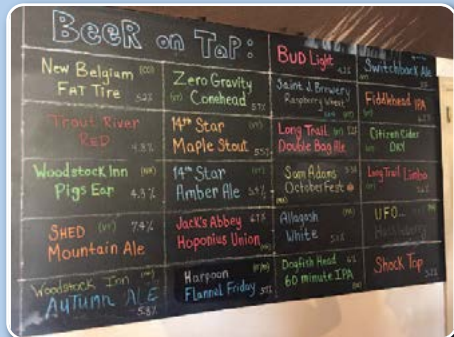 BeeR on TaP:
New Belgium (CO)
FAT Tire 5.2%
Trout River
RED 4.3%
Woodstock Inn (NH)
Pigs Ear 4.3%
SHED (VT) 7.4%
Mountain Ale
Woodstock Inn (NH)
AUTUMN ALE
5.8%
Zero Gravity
(VT) Conehead 5.7%
14th Star (VT)
Maple Stout 5.5%
14th Star (VT)
Amber Ale
Jack's Abbey
Hoponius Union
Harpoon
Flannel Friday
BUD Light
Saint J. Brewery
Raspberry Wheat
Long Trail (VT)
Double Bag Ale
Sam Adams
OctoberFest
Allagash
White
Dogfish Head
60 minute IPA
Switchback Ale
Fiddlehead IPA
Citizen Cider
DRY
Long Trail Limbo
UFO
Huckleberry
Shock Top